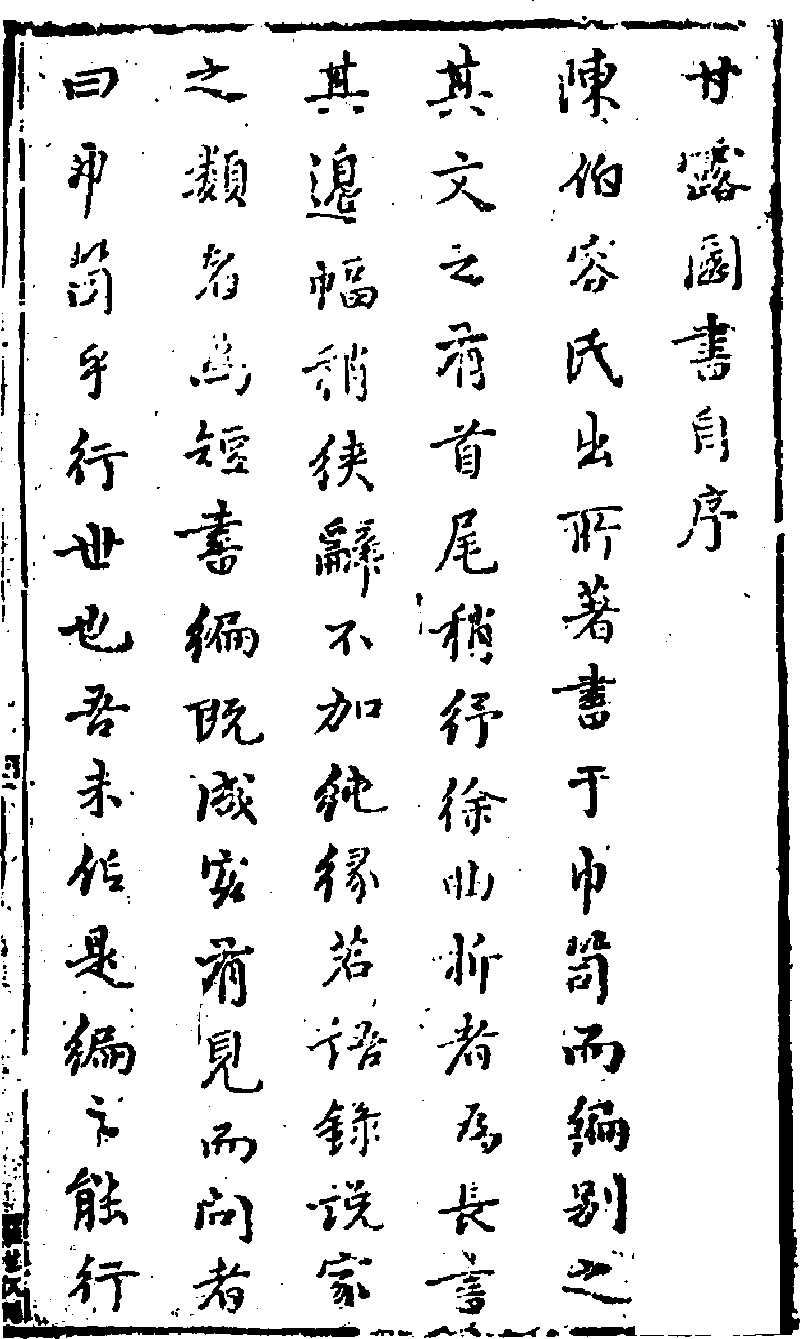 甘露園書自序
陳伯容氏出所著書于巾笥而編別之
其文之有首尾稍紆徐曲折者為長書
其邊幅稍狹辭不加純緣若語錄說家
之類者為短書編既成客有見而問者
曰笥乎行世也吾未信是編能行